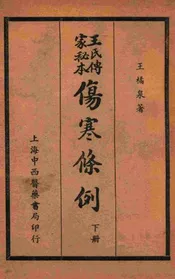 王橘泉著
王氏傳
家秘本
傷寒條例
下冊
上海中西醫藥書局印行